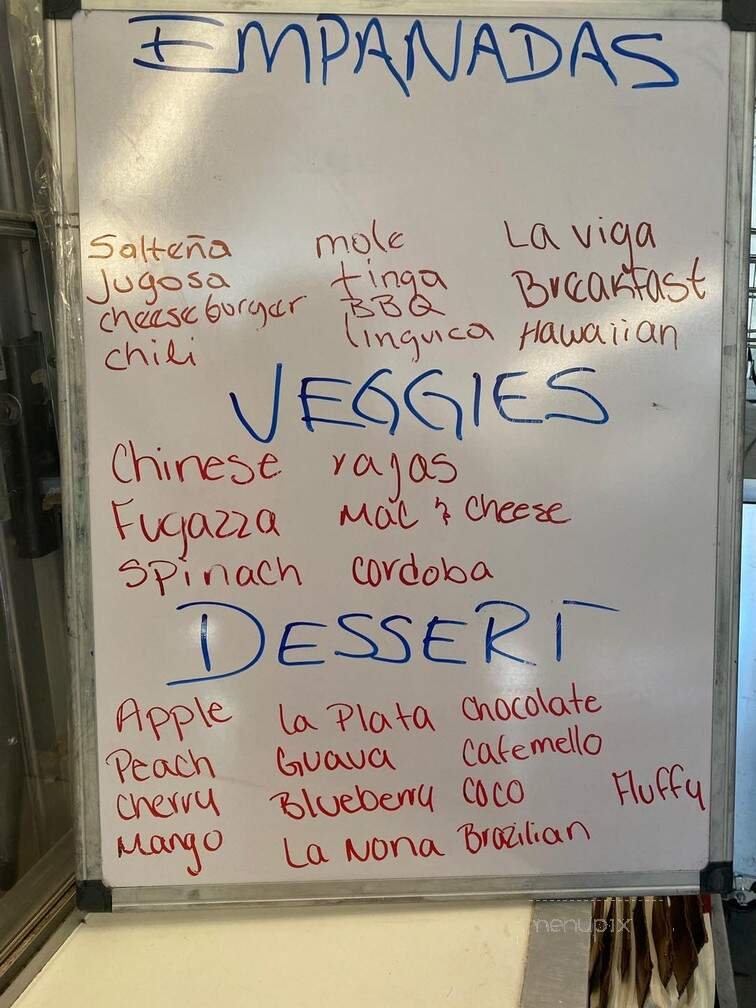 EMPANADAS
Salteña mole La viga
Jugosa tinga Breakfast
cheeseburger BBQ
chili linguica Hawaiian
VEGGIES
Chinese rajas
Fugazza Mac & Cheese
Spinach cordoba
DESSERT
Apple La Plata Chocolate
Peach Guava Cafemello
Cherry Blueberry COCO Fluffy
Mango La Nona Brazilian
menupix